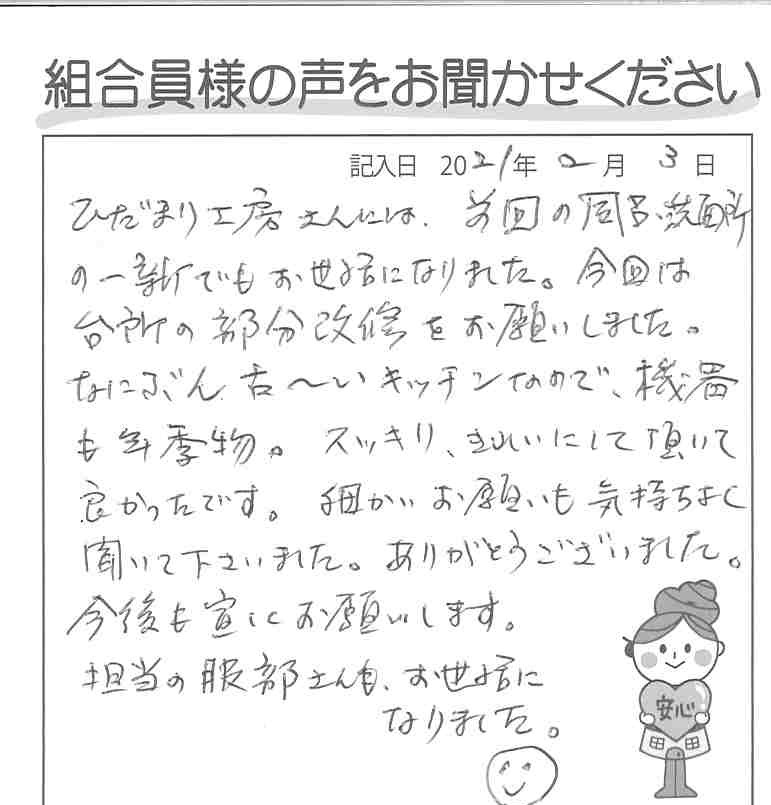 組合員様の声をお聞かせください
記入日 2021年 2月 3日
ひだまり工房さんには、前回の風呂、洗面所
の一新でもお世話になりました。今回は
台所の部分改修をお願いしました。
なにぶん古〜いキッチンなので、機器
も年季物。スッキリ、きれいにして頂いて
良かったです。細かいお願いも気持ちよく
聞いて下さいました。ありがとうございました。
今後も宜しくお願いします。
担当の服部さんも、お世話に
なりました。
安心